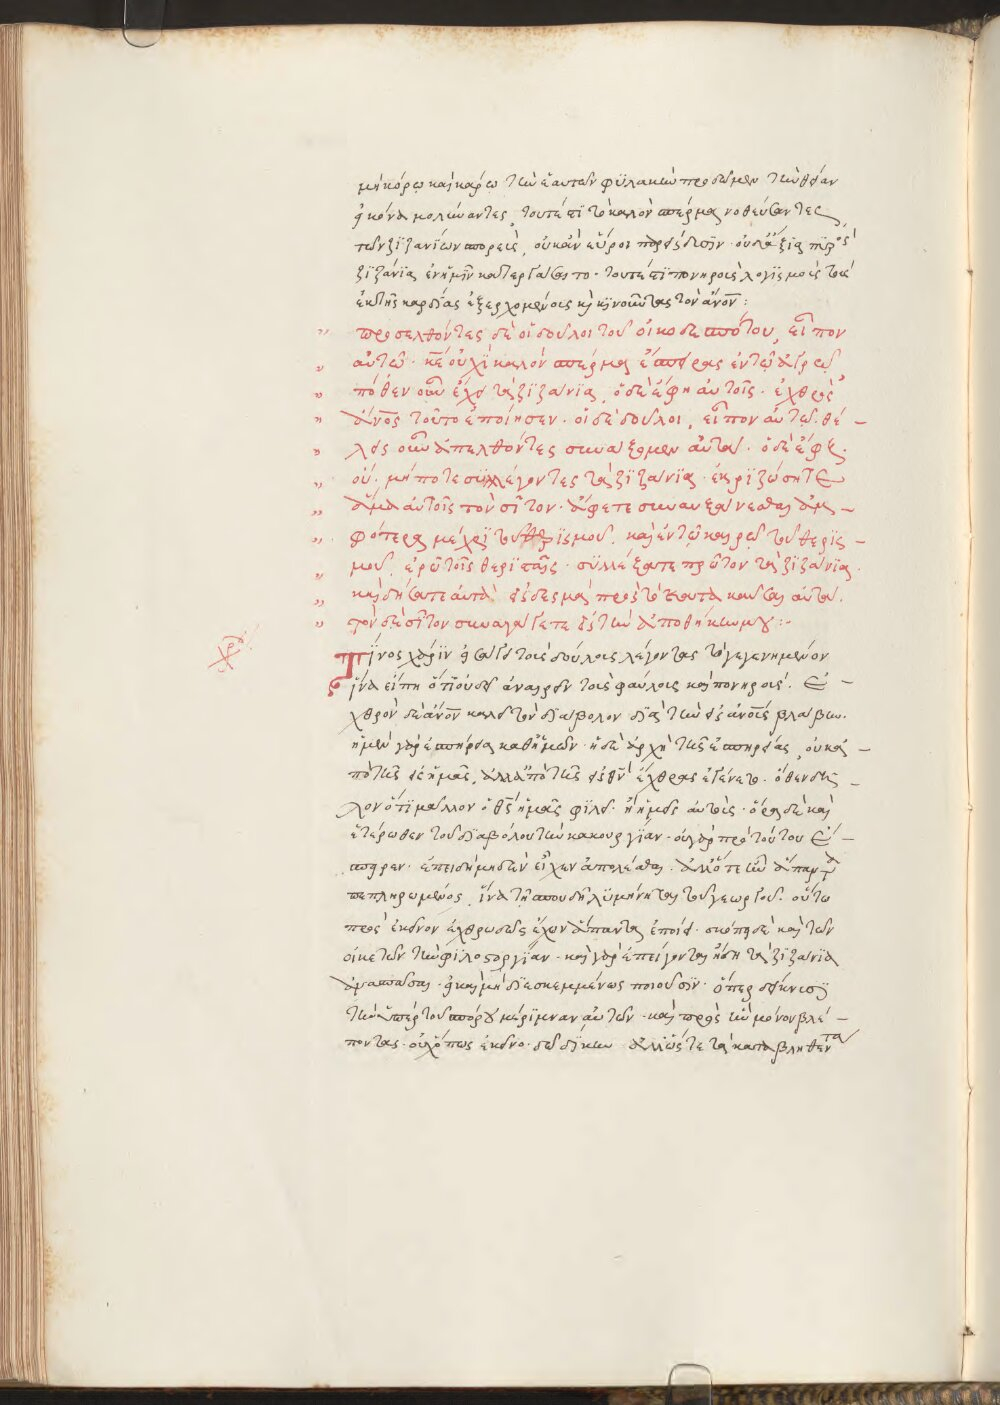 μὴ κόρω καὶ κάρω τὴν ἑαυτῶν φυλακὴν προδῶμεν τὴν θείαν
εἰκόνα μολύναντες, τουτέστι τὸ καλὸν σπέρμα νοθεύσαντες
τῶν ζιζανίων σπορεὺς, οὐκ ἂν εὕροι
ζιζάνια ἐν ἡμῖν κατεργάσαιτο· τουτέστι πονηροὺς λογισμοὺς τοὺς
ἐκ τῆς καρδίας ἐξερχομένους καὶ κοινοῦντας τὸν ἄνον:
προσελθόντες δὲ οἱ δοῦλοι τοῦ οἰκοδεσπότου, εἶπον
αὐτῶ· κε οὐχὶ καλὸν σπέρμα ἔσπειρας ἐν τῶ ἀγρῶ
πόθεν οὖν ἔχει τὰ ζιζάνια, ὁ δὲ ἔφη αὐτοῖς· ἐχθρὸς
ἄνος τοῦτο ἐποίησεν· οἱ δὲ δοῦλοι, εἶπον αὐτῶ· θέ-
λεις οὖν ἀπελθόντες συνάξομεν αὐτά· ὁ δὲ ἔφη.
οὔ· μήποτε συλλέγοντες τὰ ζιζάνια· ἐκριζώσητε
ἅμα αὐτοῖς τὸν σῖτον· ἄφετε συναυξάνεσθαι ἀμ-
φότερα μέχρι τοῦ θερισμοῦ. καὶ ἐν τῶ καιρῶ τοῦ θερισ-
μοῦ, ἐρῶ τοῖς θερισταῖς· συλλέξατε πρῶτον τὰ ζιζάνια.
καὶ δήσατε αὐτὰ εἰς δεσμὰς πρὸς τὸ κατακαῦσαι αὐτά.
τὸν δὲ σῖτον συναγάγετε εἰς τὴν ἀποθήκην μου:-
Τίνος χάριν εἰσάγει τοὺς δούλους λέγοντας τὸ γεγενημένον
ἵνα εἴπη ὅτι οὐ δεῖ ἀναιρεῖν τοὺς φαύλους καὶ πονηρούς. ἐ-
χθρὸν δὲ ἄνον καλεῖ τὸν διάβολον διὰ τὴν εἰς ἀνους βλάβην.
ἡ μὲν γὰρ ἐπήρεια καθ' ἡμῶν· ἡ δὲ ἀρχὴ τῆς ἐπηρείας, οὐκ ἀ-
πὸ τῆς εἰς ἡμᾶς, ἀλλ' ἀπὸ τῆς εἰς θν ἔχθρας ἐγένετο· ὅθεν δῆ-
λον ὅτι μᾶλλον ὁ θς ἡμᾶς φιλεῖ· ἢ ἡμεῖς αὐτούς· ὅρα δὲ καὶ
ἑτέρωθεν τοῦ διαβόλου τὴν κακουργίαν· οὐ γὰρ πρὸ τούτου ἔ-
σπειρεν· ἐπειδὴ μηδὲν εἶχεν ἀπολέσαι· ἀλλ' ὅτε ἦν ἅπαντα
πεπληρωμένος, ἵνα τῇ σπουδῇ λυμήνηται τοῦ γεωργοῦ. οὕτω
πρὸς ἐκεῖνον ἐχθρωδῶς ἔχων ἅπαντα ἐποίει· σκόπει δὲ καὶ τῶν
οἰκετῶν τὴν φιλοστοργίαν· καὶ γὰρ ἐπείγονται ἤδη τὰ ζιζάνια
ἀνασπάσαι· εἰ καὶ μὴ διεσκεμμένως ποιοῦσιν· ὅπερ δείκνυσι
τὴν ὑπὲρ τοῦ σπόρου μέριμναν αὐτῶν· καὶ πρὸς ἓν μόνον βλέ-
ποντας· οὐχ ὅπως ἐκεῖνο δῶ δίκην ἀλλ' ὥστε τὰ καταβληθέντα